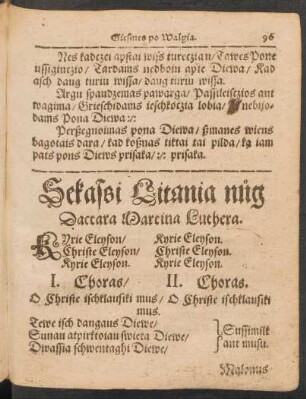 Giesmes po Walgia. 96
Nes kadczei apstai wiss tureczian/ Tawes Pone
ussigintzio/ Tardams nedboiu apie Diewa/ Kad
asch daug turiu wissa/ daug turiu wissa.
Argu spaudzemas pawarga/ Passileiszios ant
wagima/ Grieschidams ieschkotzia lobia/ nebijo-
dams Pona Diewa :/:
Perßegnoimas pona Diewa/ ßmanes wiens
bagotais dara/ kad koßnas tiktai tai pilda/ ką iam
pats pons Diews prisaka/:/: prisaka.
Sekassi Litania nůg
Dactara Martina Luthera.
KYrie Eleyson/ Kyrie Eleyson.
Christe Eleyson/ Christe Eleyson.
Kyrie Eleyson. Kyrie Eleyson.
I. Choras/ II. Choras.
O Christe ischklausiki mus/ O Christe ischklausiki
mus.
Tewe isch dangaus Diewe/
Sunau atpirktoiau swieta Diewe/ Sussimilk
Dwassia schwentaghi Diewe/ ant musu.
Malonus